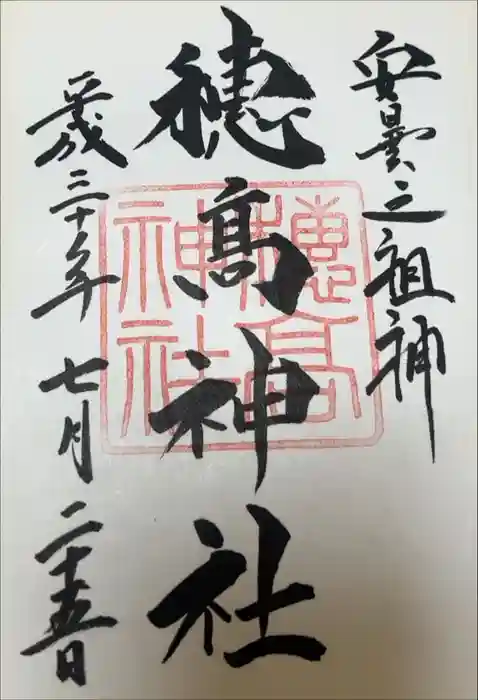 安曇之祖神
穂髙神社
平成三十年七月二十五日
穂高
神社